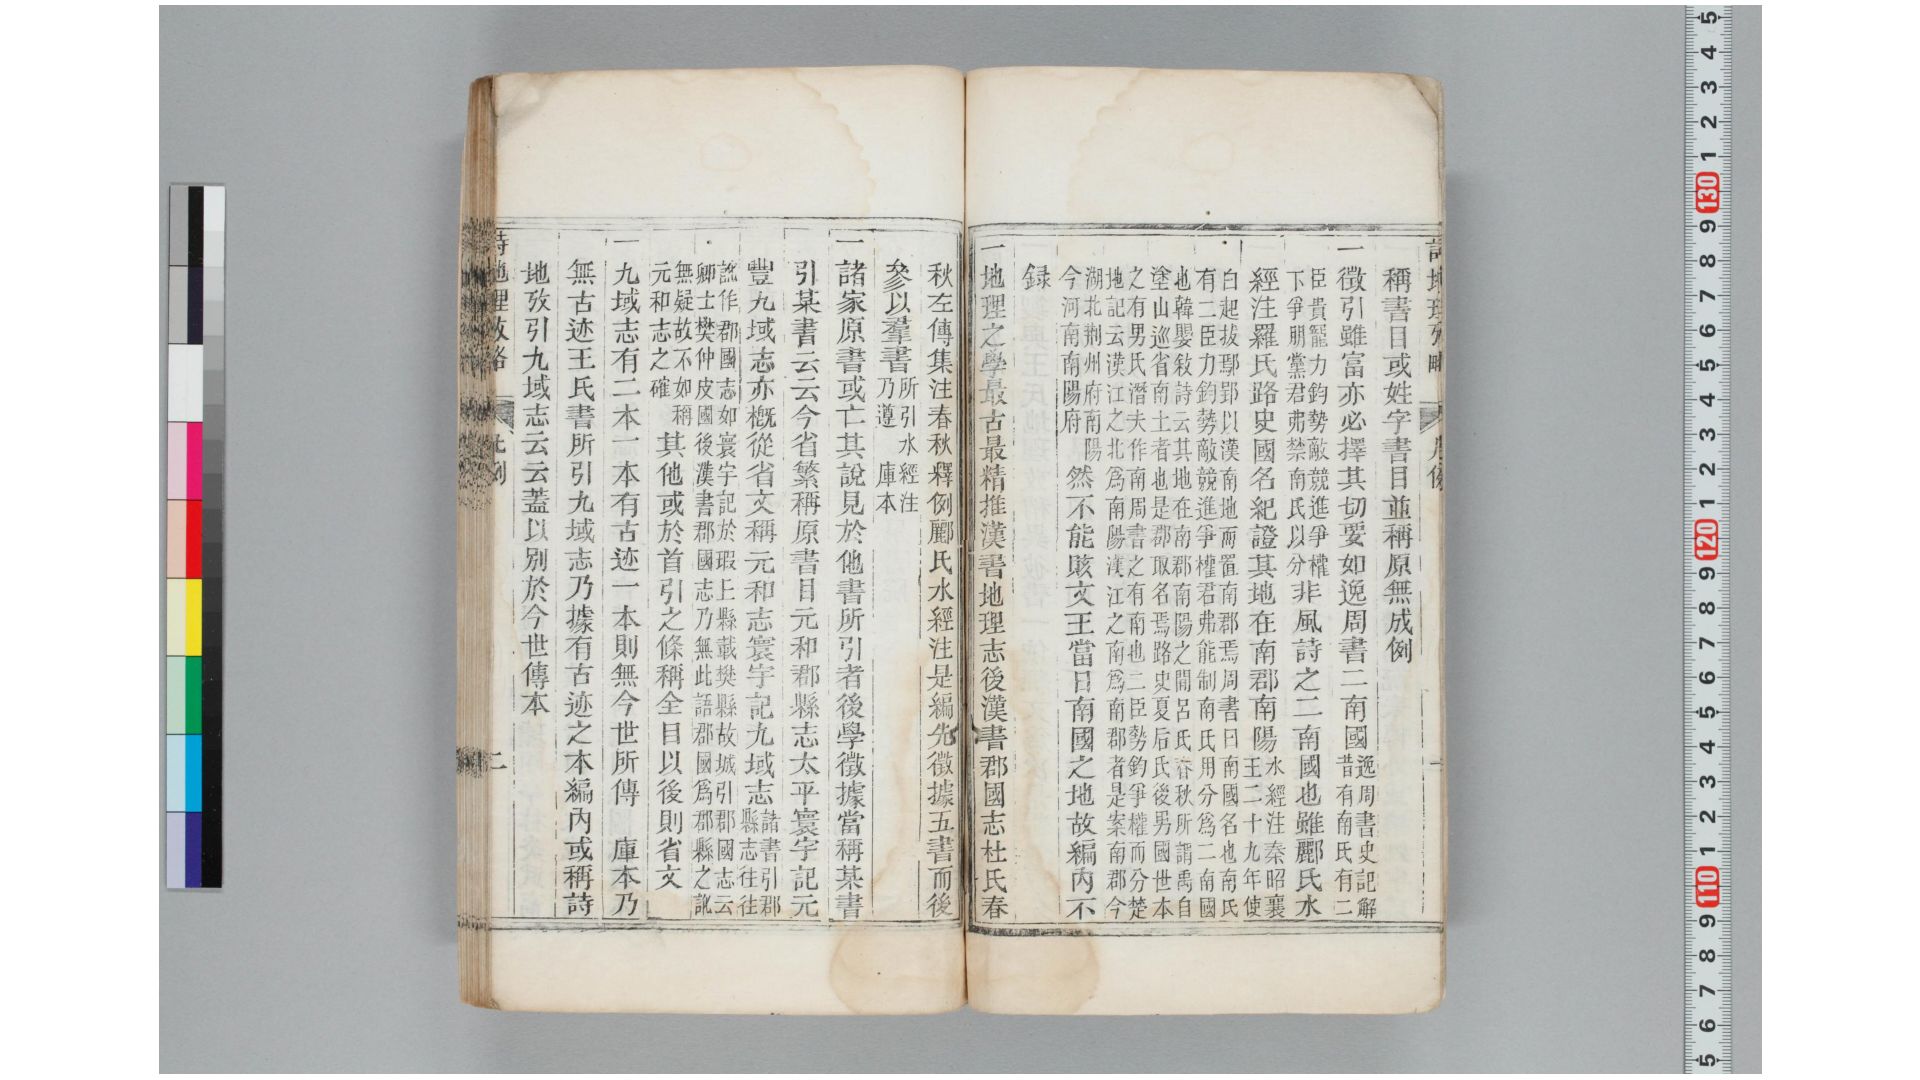 詩地理攷略 凡例 一
稱書目或姓字書目並稱原無成例
一徵引雖富亦必擇其切要如逸周書二南國
逸周書史記解
昔有南氏有二
臣貴寵力鈞勢敵競進爭權
下爭朋黨君弗禁南氏以分
非風詩之二南國也雖酈氏水
經注羅氏路史國名紀證其地在南郡南陽
水經注秦昭襄
王二十九年使
白起拔鄢郢以漢南地而置南郡焉周書曰南國名也南氏
有二臣力鈞勢敵競進爭權君弗能制南氏用分爲二南國
也韓嬰敘詩云其地在南郡南陽之閒呂氏春秋所謂禹自
塗山巡省南土者也是郡取名焉路史夏后氏後男國世本
之有男氏潛夫作南周書之有南也二臣勢鈞爭權而分楚
地記云漢江之北爲南陽漢江之南爲南郡者是案南郡今
湖北荆州府南陽
今河南南陽府
然不能賅文王當日南國之地故編內不
錄
一地理之學最古最精推漢書地理志後漢書郡國志杜氏春
秋左傳集注春秋釋例酈氏水經注是編先徵據五書而後
參以羣書
所引水經注
乃遵 庫本
一諸家原書或亡其說見於他書所引者後學徵據當稱某書
引某書云云今省繁稱原書目元和郡縣志太平寰宇記元
豐九域志亦槪從省文稱元和志寰宇記九域志
諸書引郡
縣志往往
訛作郡國志如寰宇記於瑕上縣載樊縣故城引郡國志云
卿士樊仲皮國後漢書郡國志乃無此語郡國爲郡縣之訛
無疑故不如稱
元和志之確
其他或於首引之條稱全目以後則省文
一九域志有二本一本有古迹一本則無今世所傳 庫本乃
無古迹王氏書所引九域志乃據有古迹之本編內或稱詩
地攷引九域志云云蓋以別於今世傳本
詩地理攷略 凡例 二